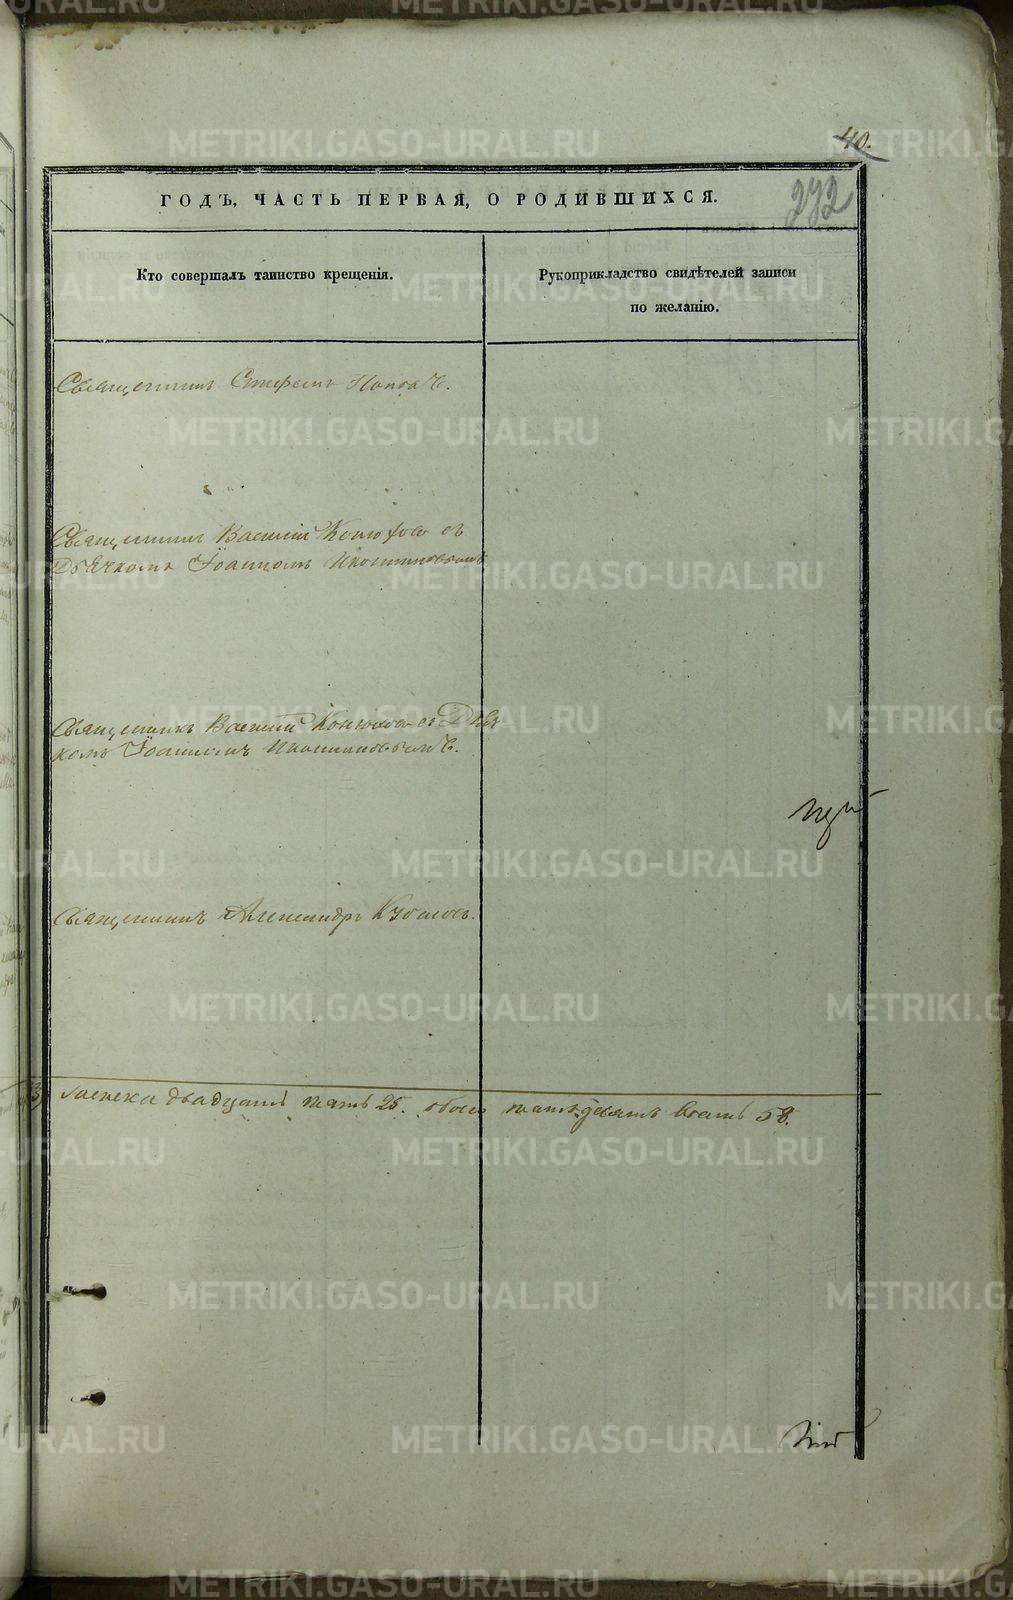 40.
272
ГОДЪ, ЧАСТЬ ПЕРВАЯ, О РОДИВШИХСЯ.
Кто совершалъ таинство крещенія.
Рукоприкладство свидѣтелей записи
по желанію.
Священникъ Стефанъ Поповъ.
Священникъ Василій Конюховъ съ
Дьячкомъ Іоанномъ
Священникъ Василій Конюховъ съ Дьяч
комъ Іоанномъ
Священникъ Александръ
женска двадцать пять 25. обоего пятьдесятъ восемь 58.
METRIKI.GASO-URAL.RU